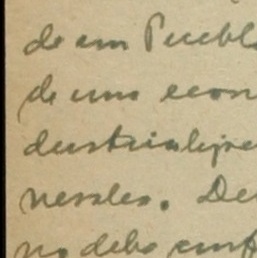 de un Puebl
de una econ
dustrialize
nerales. De
no debe conf